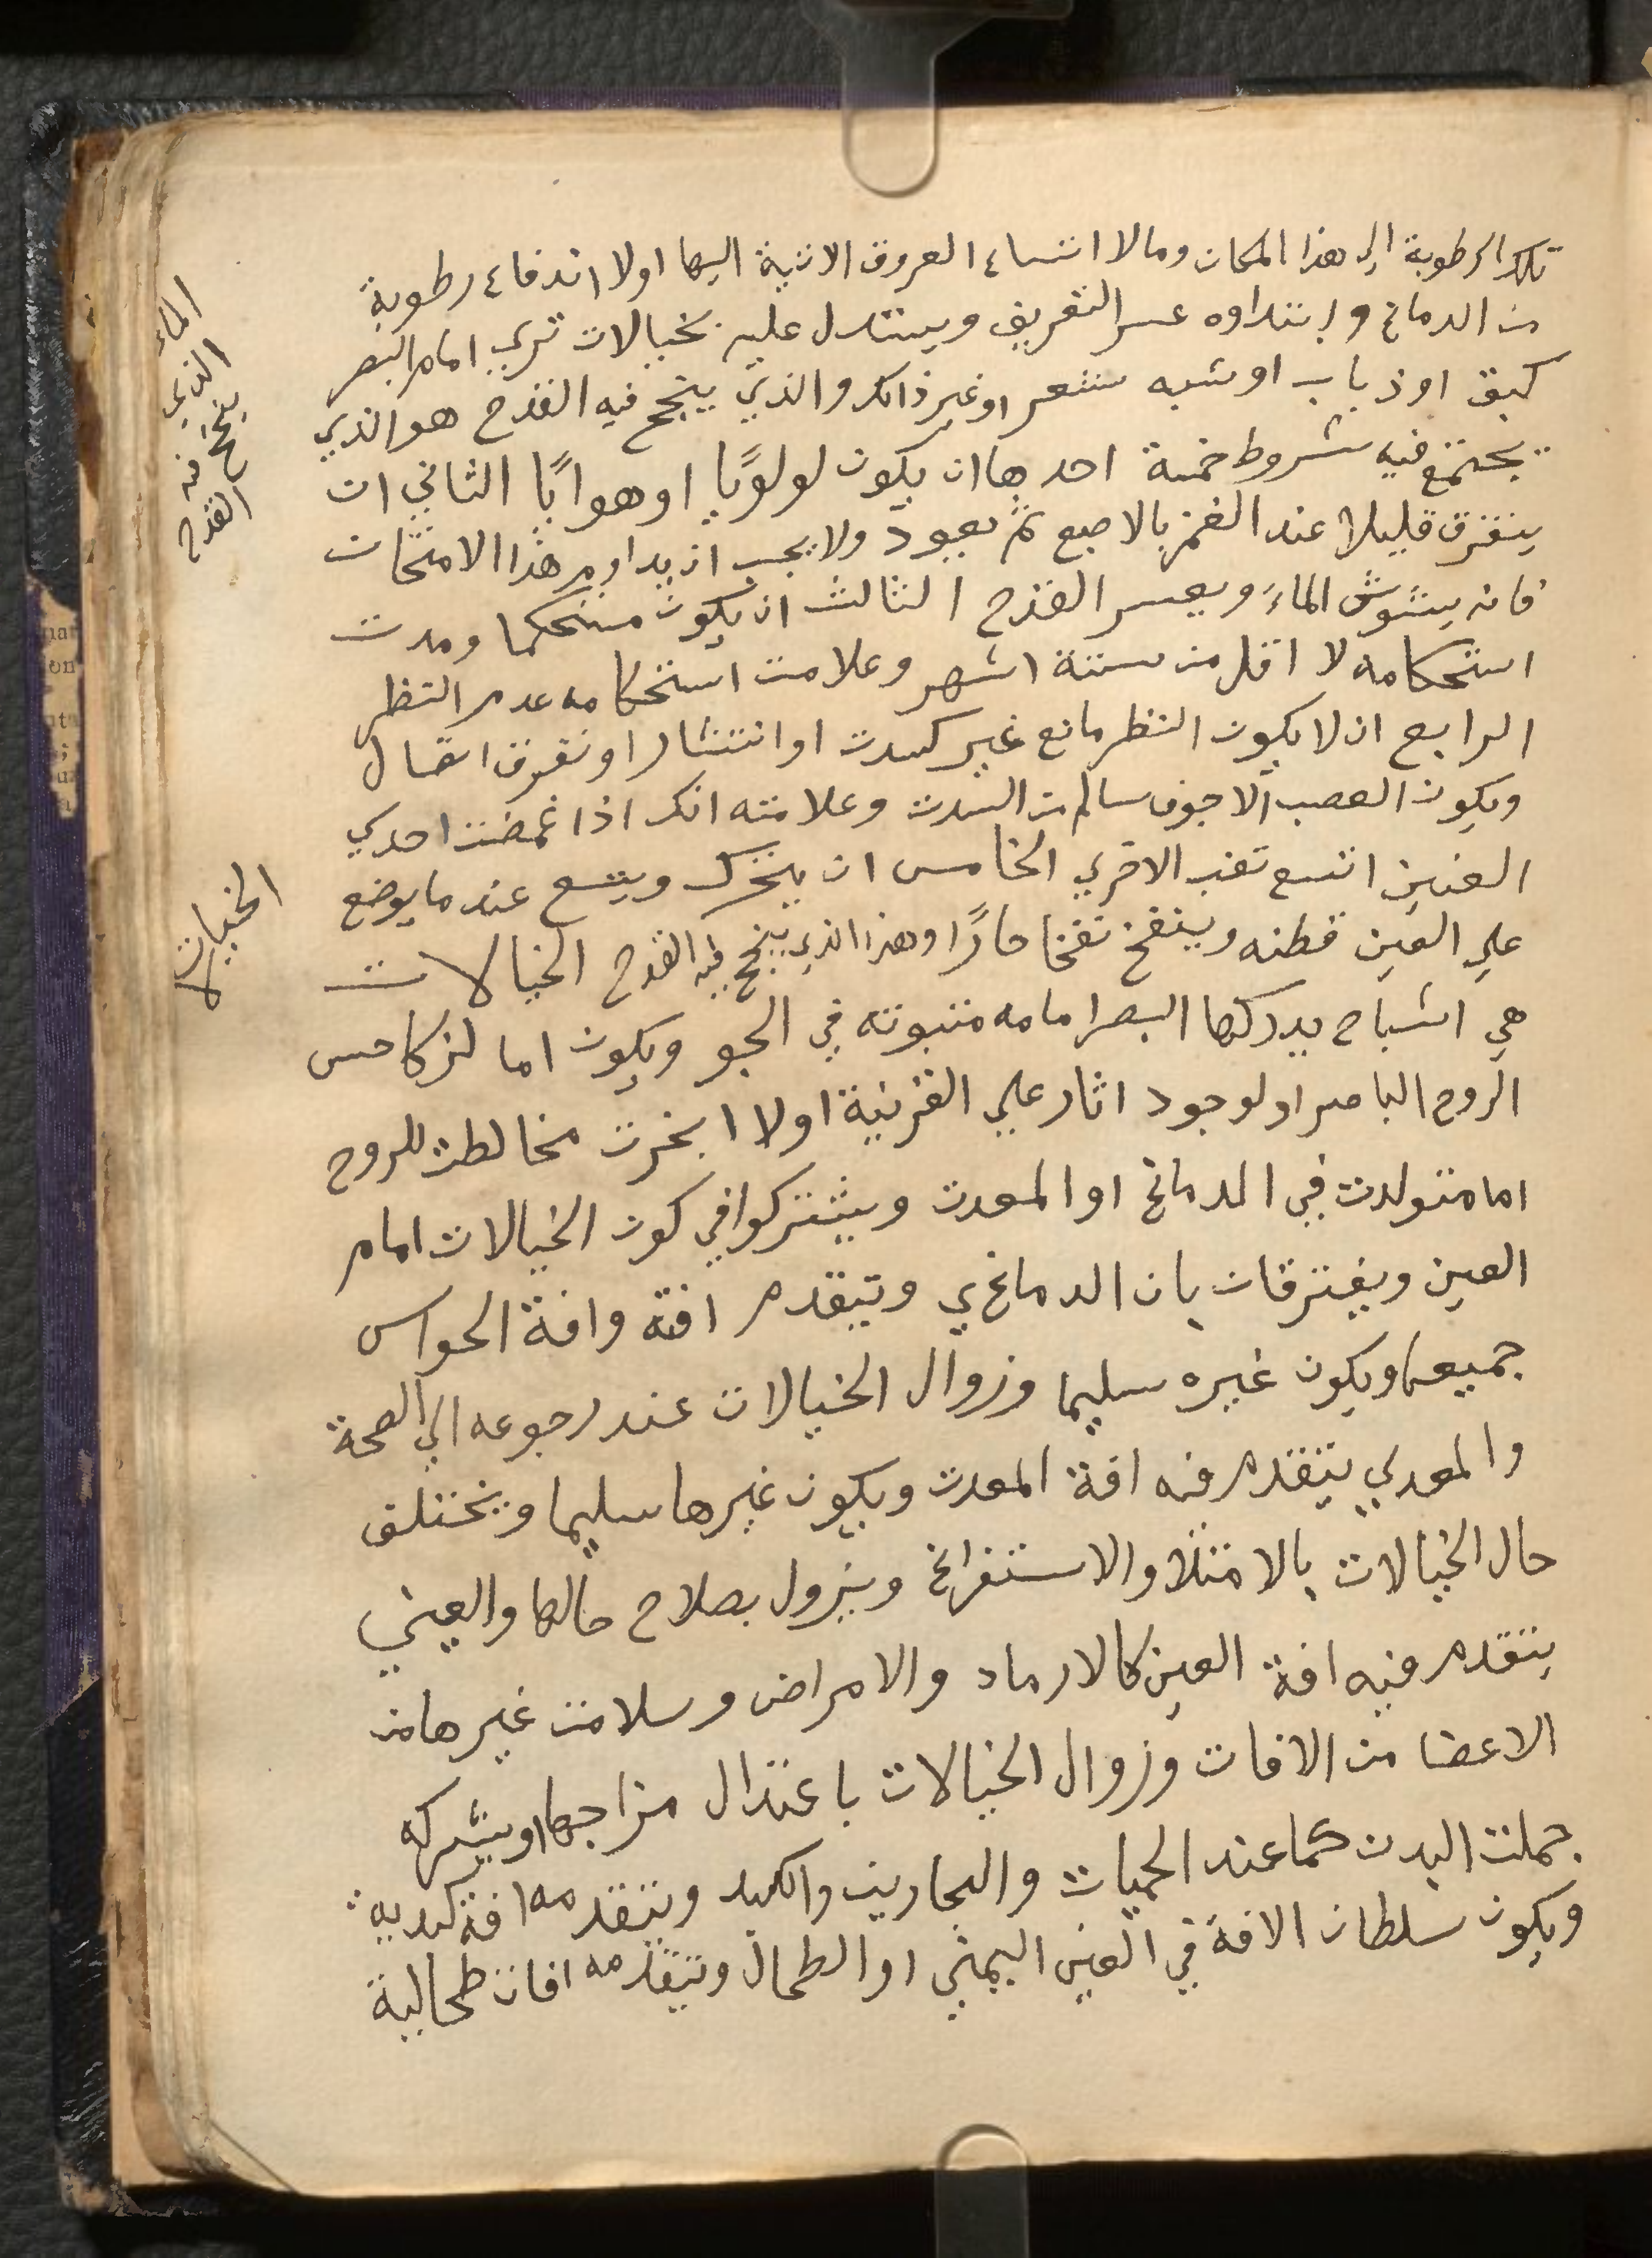 تلك الرطوبة الي هذا المكان ومالا اتساع العروق الاتية اليها اولا اندفاع رطوبة
من الدماغ وابتداوه عسر التفريق ويستدل عليه بخيالات تري امام البصر
كبق او ذباب او شبه شعر او غير ذالك والذي ينجح فيه القدح هو الذي
يجتمع فيه شروط خمسة احدها ان يكون لولويًا او هوايًا الثاني ان
يتفرق قليلا عند الغمز بالاصبع ثم يعود ولا يجب ان يداوم هذا الامتحان
فانه يشوش الماء ويعسر القدح الثالث ان يكون مستحكما ومدت
استحكامه لا اقل من ستة اشهر وعلامت استحكامه عدم النظر
الرابع ان لا يكون النظر مانع غير كسدت او انتشار او تفرق اتصال
ويكون العصب الاجوف سالم من السدت وعلامته انك اذا غمضت احدي
العينين اتسع تقب الاخري الخامس ان يتحرك ويتسع عند ما يوضع
علي العين قطنه وينفخ نفخا حارًا وهذا الذي ينجح فيه القدح الخيالات
هي اشباح يدركها البصر امامه متبوته في الجو ويكون اما لزكا حس
الروح الباصر او لوجود اثار علي القرنية اولا ابخرت مخالطت للروح
اما متولدت في الدماغ او المعدت ويشتركوا في كون الخيالات امام
العين ويفترقان بان الدماغي وتيقدم افته وافة الحواس
جميعها ويكون غيره سليما وزوال الخيالات عند رجوعه الي الصحة
والمعدي يتقدم فيه افة المعدت ويكون غيرها سليما ويختلف
حال الخيالات بالامتلا والاستفراغ ويزول بصلاح حالها والعيني
يتقدم فيه افة العين كالارماد والامراض وسلامت غيرها من
الاعضا من الافات وزوال الخيالات باعتدال مزاجها او بشركه
جملت البدن كما عند الحميات والبحارين والكبد وتتقدمه افة كبديه
ويكون سلطان الافة في العين اليمني او الطحال وتتقدمه افات طحالية
الماء
الذي
ينجح فيه
القدح
الخيالات